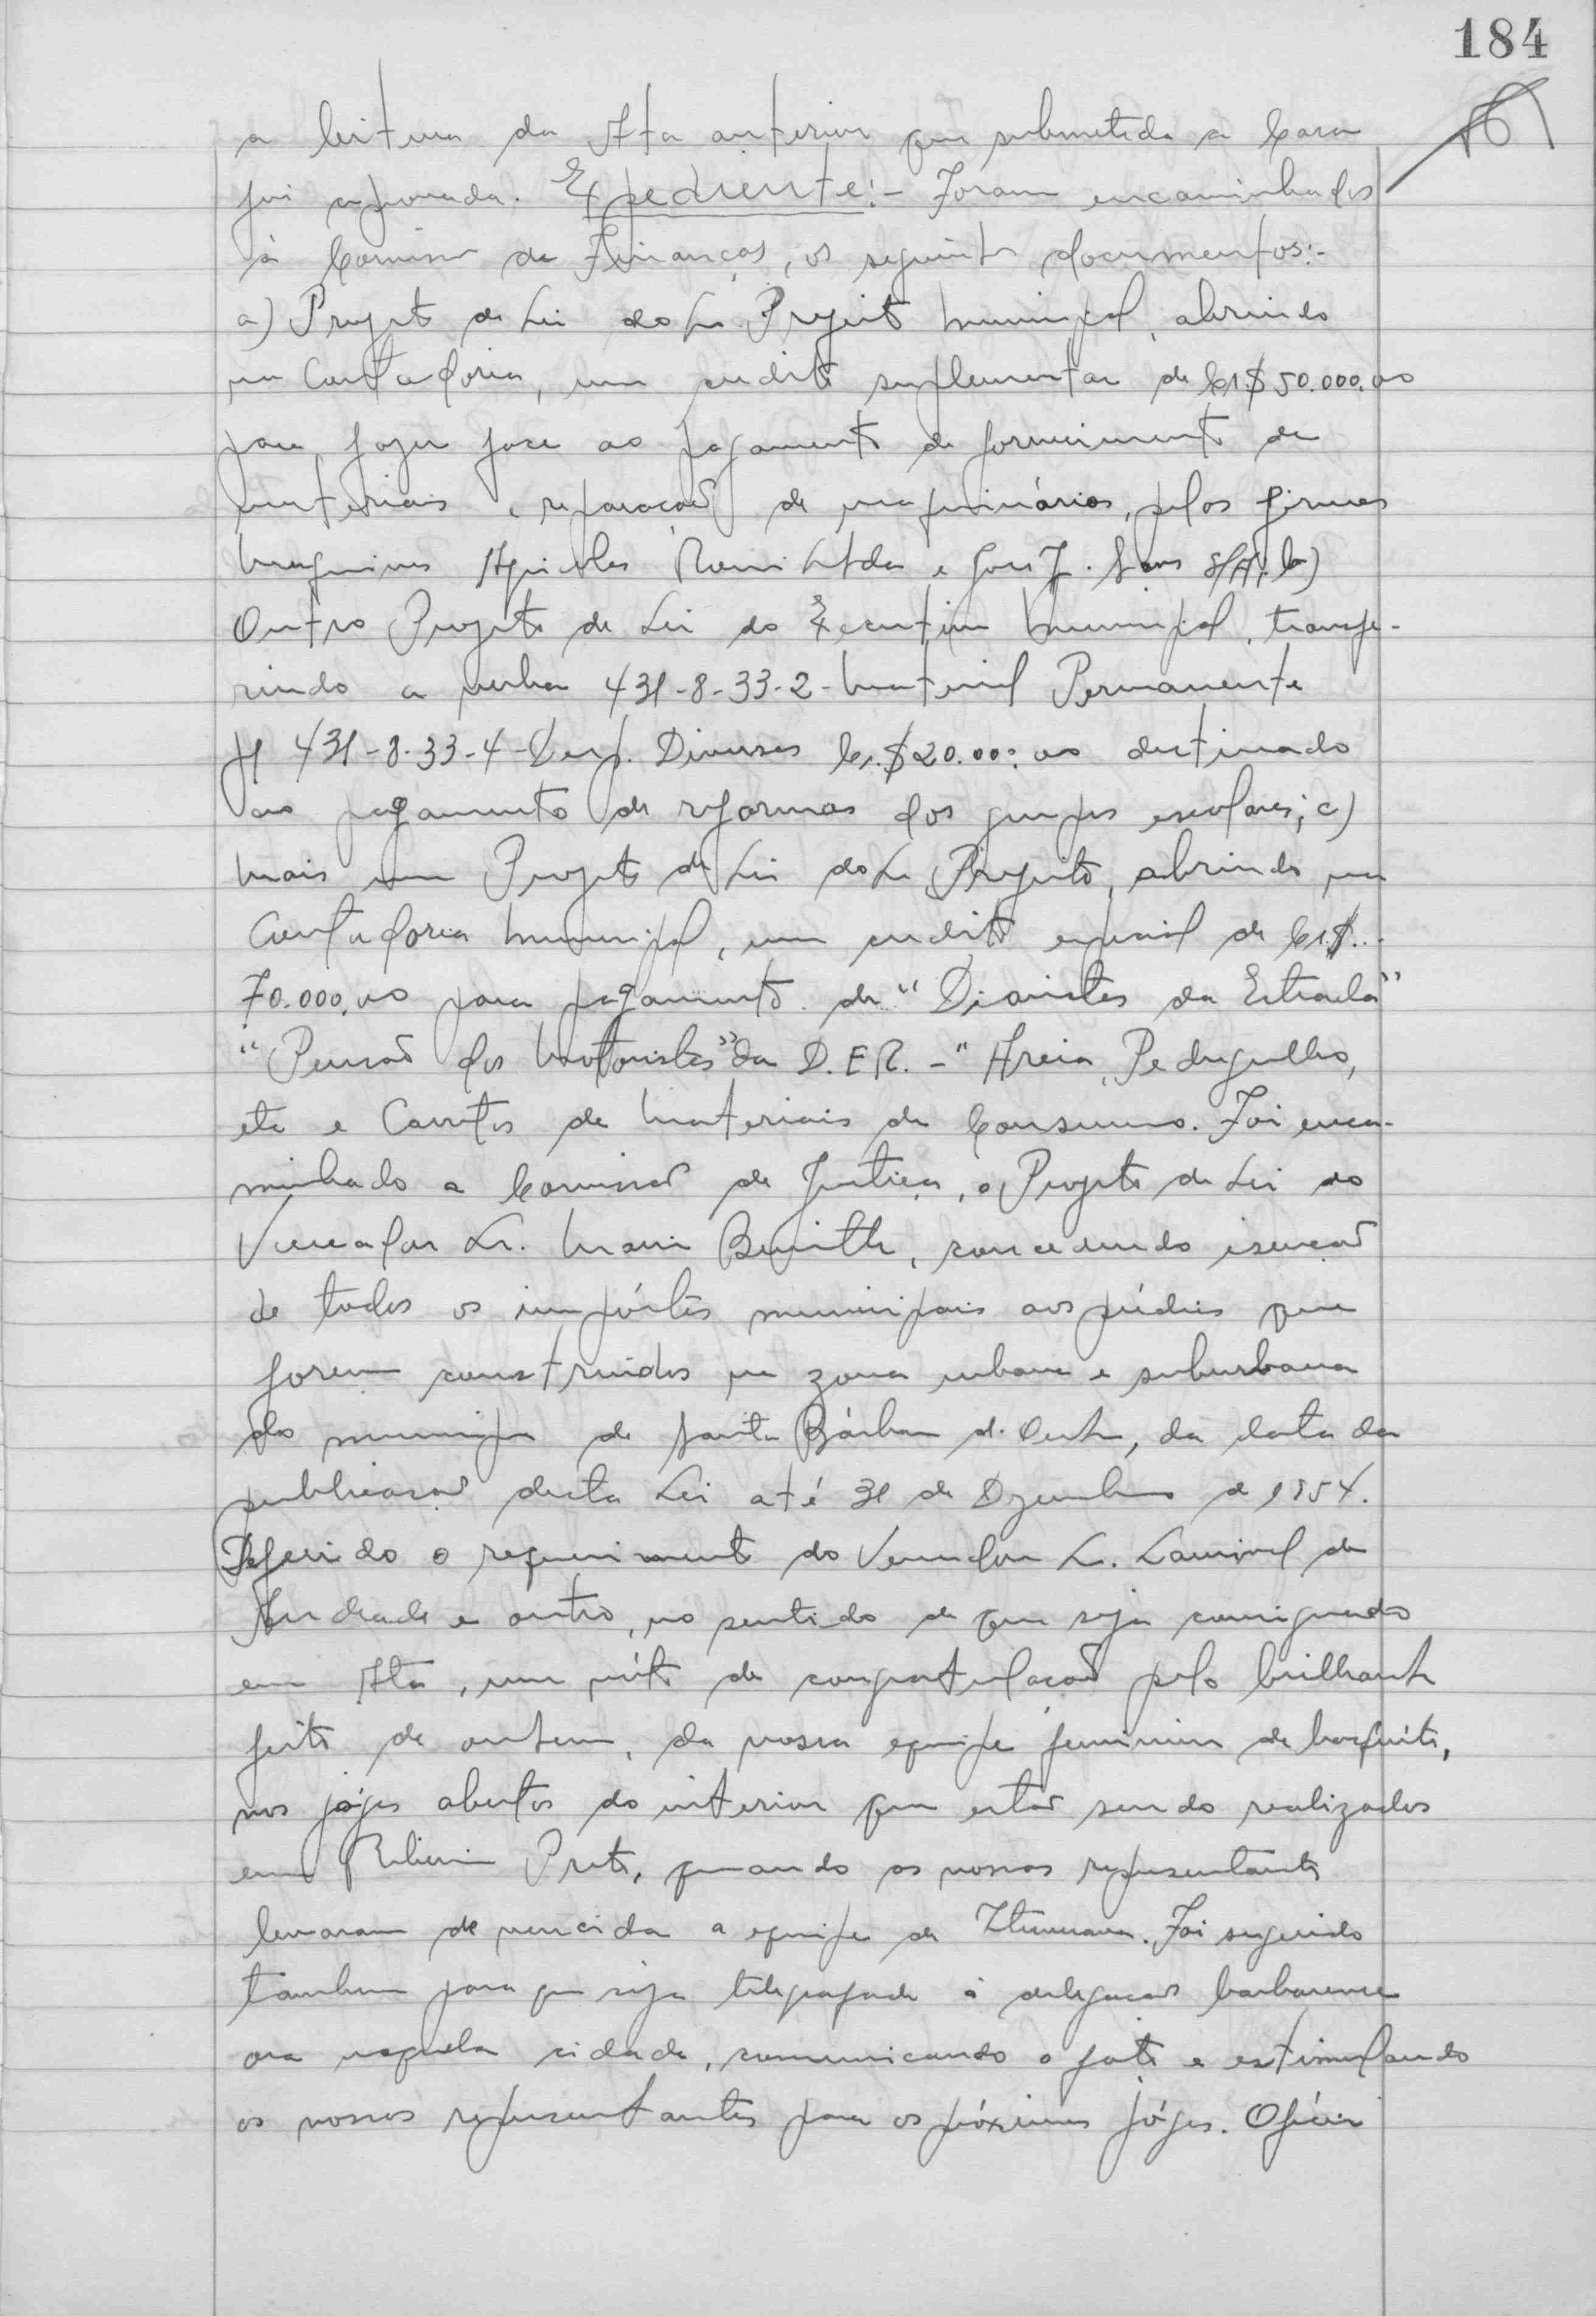 184
a leitura da Ata anterior que submetida a Casa
foi aprovada. Expediente:- Foram encaminhados
à Comissão de Finanças, os seguintes documentos:-
a) Projeto de Lei do Sr. Prefeito Municipal, abrindo
na Contadoria, um credito suplementar de Cr.$ 50.000,00
para fazer face ao pagamento de fornecimento de
materiais e reparação de maquinários, pelas firmas
Maquinas Agricolas Romi Ltda e J. Sans S/A. b)
Outro Projeto de Lei do Executivo Municipal, transfe-
rindo a verba 431-8-33-2-Material Permanente
p/ 431-8-33-4-Desp. Diversas Cr.$20.000,00 destinado
ao pagamento de reformas dos grupos escolares; c)
Mais um Projeto de Lei do Sr. Prefeito, abrindo na
Contadoria Municipal, um credito especial de Cr.$...
70.000,00 para pagamento de "Diaristas da Estrada"
"Pensão dos Motoristas" da D.E.R. -" Areia, Pedregulho,
etc e Carretos de Materiais de Consumo. Foi enca-
minhado a Comissão de Justiça, o Projeto de Lei do
Vereador Sr. concedendo isenção
de todos os impóstos municipais aos prédios que
forem construidos na zona urbana e suburbana
do municipio de Santa Bárbara d'Oeste, da data da
publicação desta Lei até 31 de Dezembro de 1954.
Deferido o requerimento do Vereador Sr. de
Andrade e outro, no sentido de que seja consignado
em Ata, um vóto de congratulação pelo brilhante
feito de ontem, da nossa equipe feminina de basquete,
nos jógos abertos do interior que estão sendo realizados
em Ribeirão Preto, quando as nossas representantes
levaram de vencida a equipe de Foi sugerido
tambem para que seja telegrafado á delegação barbarense
ora naquela cidade, comunicando o fato e estimulando
os nossos representantes para os próximos jógos. Oficio